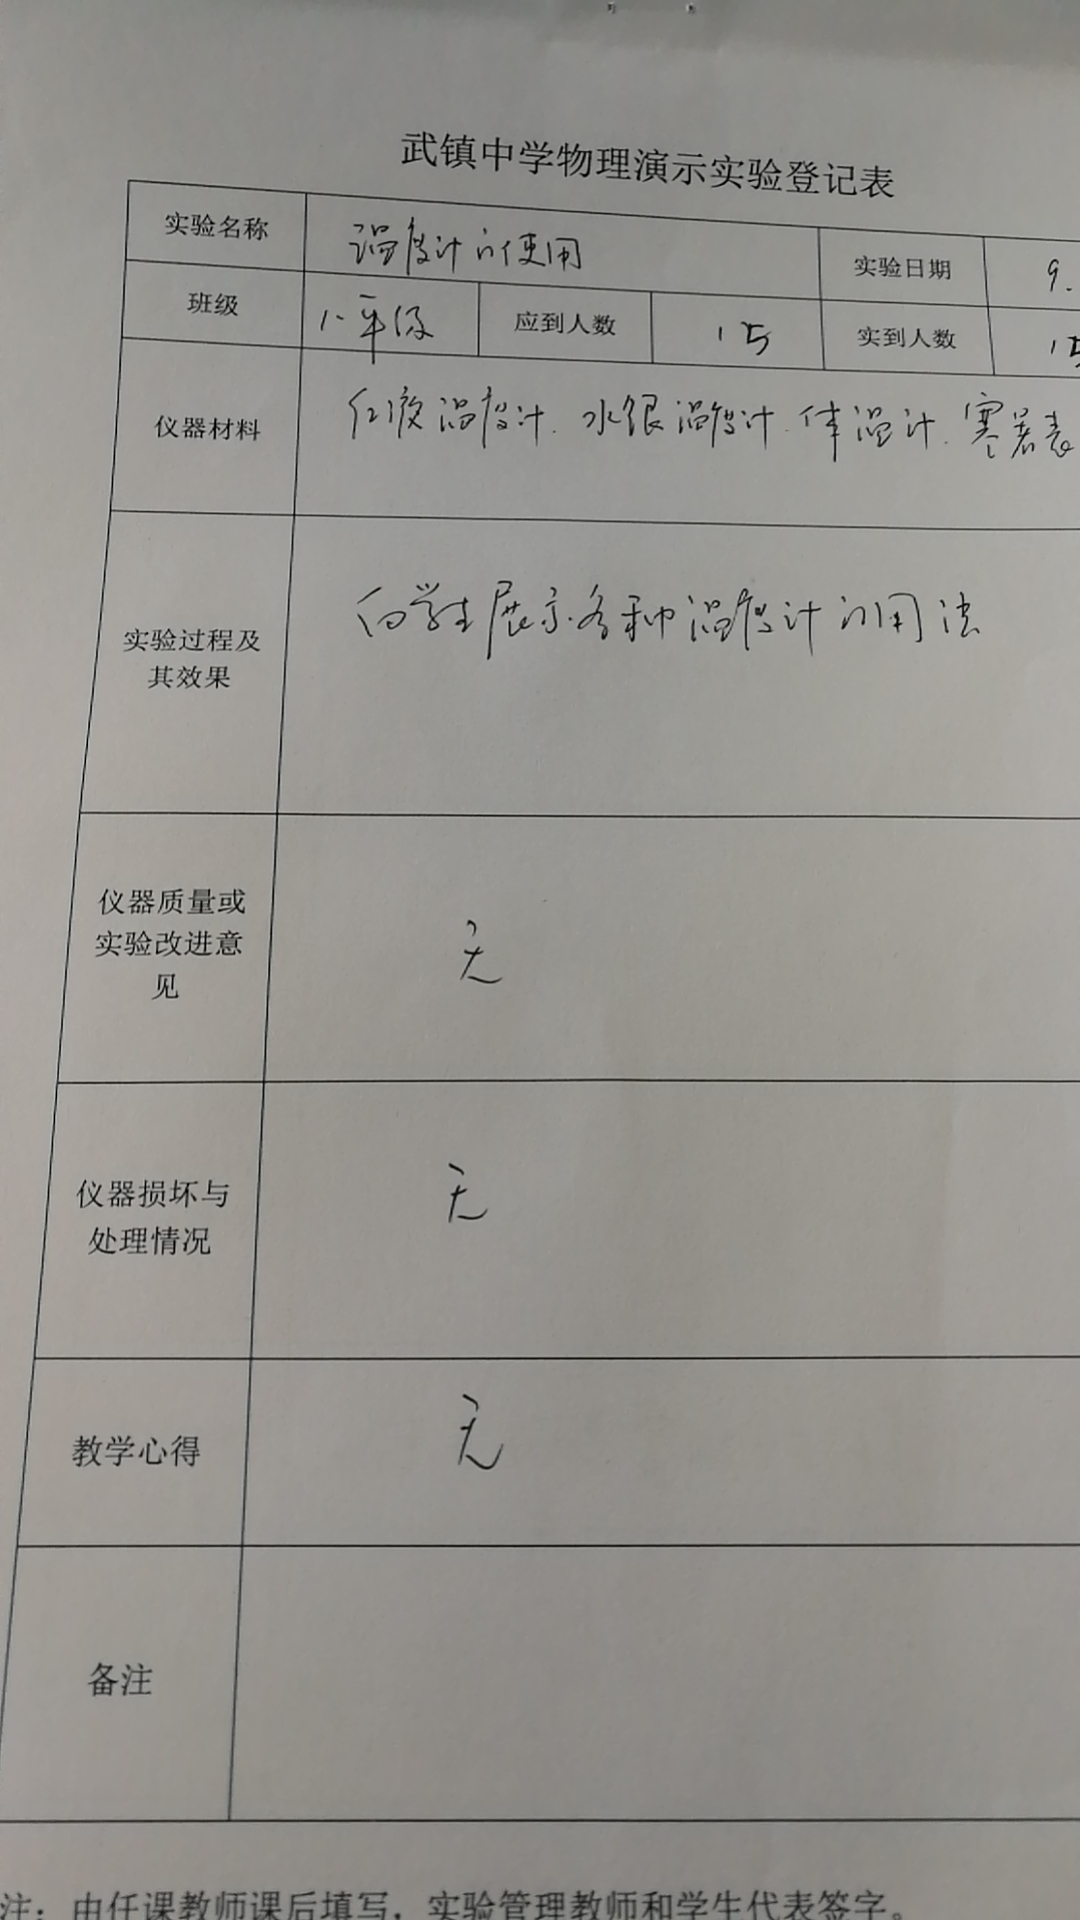 武镇中学物理演示实验登记表
实验名称 温度计的使用 实验日期 9.
班级 八年级 应到人数 15 实到人数 15
仪器材料 红液温度计.水银温度计.体温计.寒暑表
实验过程及其效果 向学生展示各种温度计的用法
仪器质量或实验改进意见 无
仪器损坏与处理情况 无
教学心得 无
备注
注：由任课教师课后填写，实验管理教师和学生代表签字。